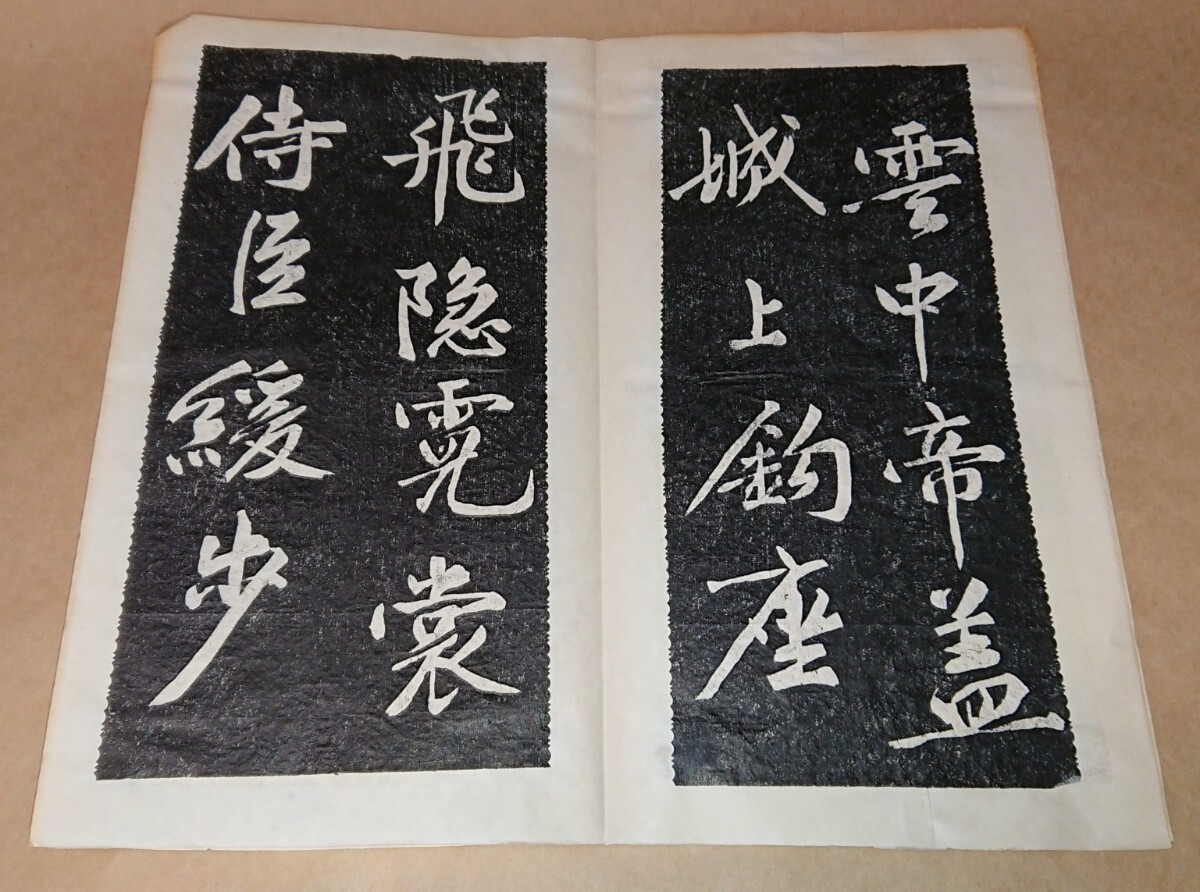 雲中帝盖
城上鈎座
飛隐霓裳
侍臣緩步